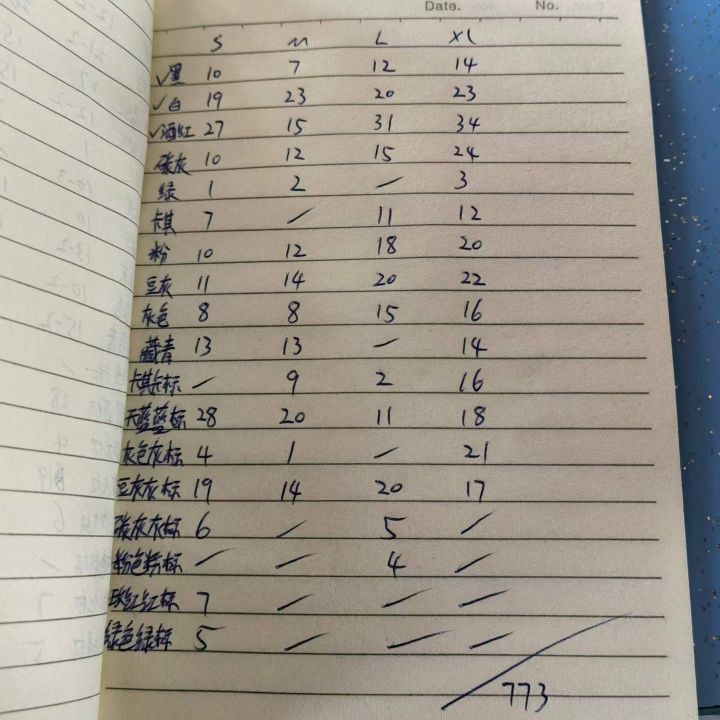 Date. No.
S M L XL
✓黑 10 7 12 14
✓白 19 23 20 23
✓酒红 27 15 31 34
碳灰 10 12 15 24
绿 1 2 / 3
卡其 7 / 11 12
粉 10 12 18 20
豆灰 11 14 20 22
灰色 8 8 15 16
藏青 13 13 / 14
卡其卡标 / 9 2 16
天蓝蓝标 28 20 11 18
灰色灰标 4 1 / 21
豆灰灰标 19 14 20 17
碳灰灰标 6 / 5 /
粉色粉标 / / 4 /
玫红红标 7 / / /
绿色绿标 5 / / /
773